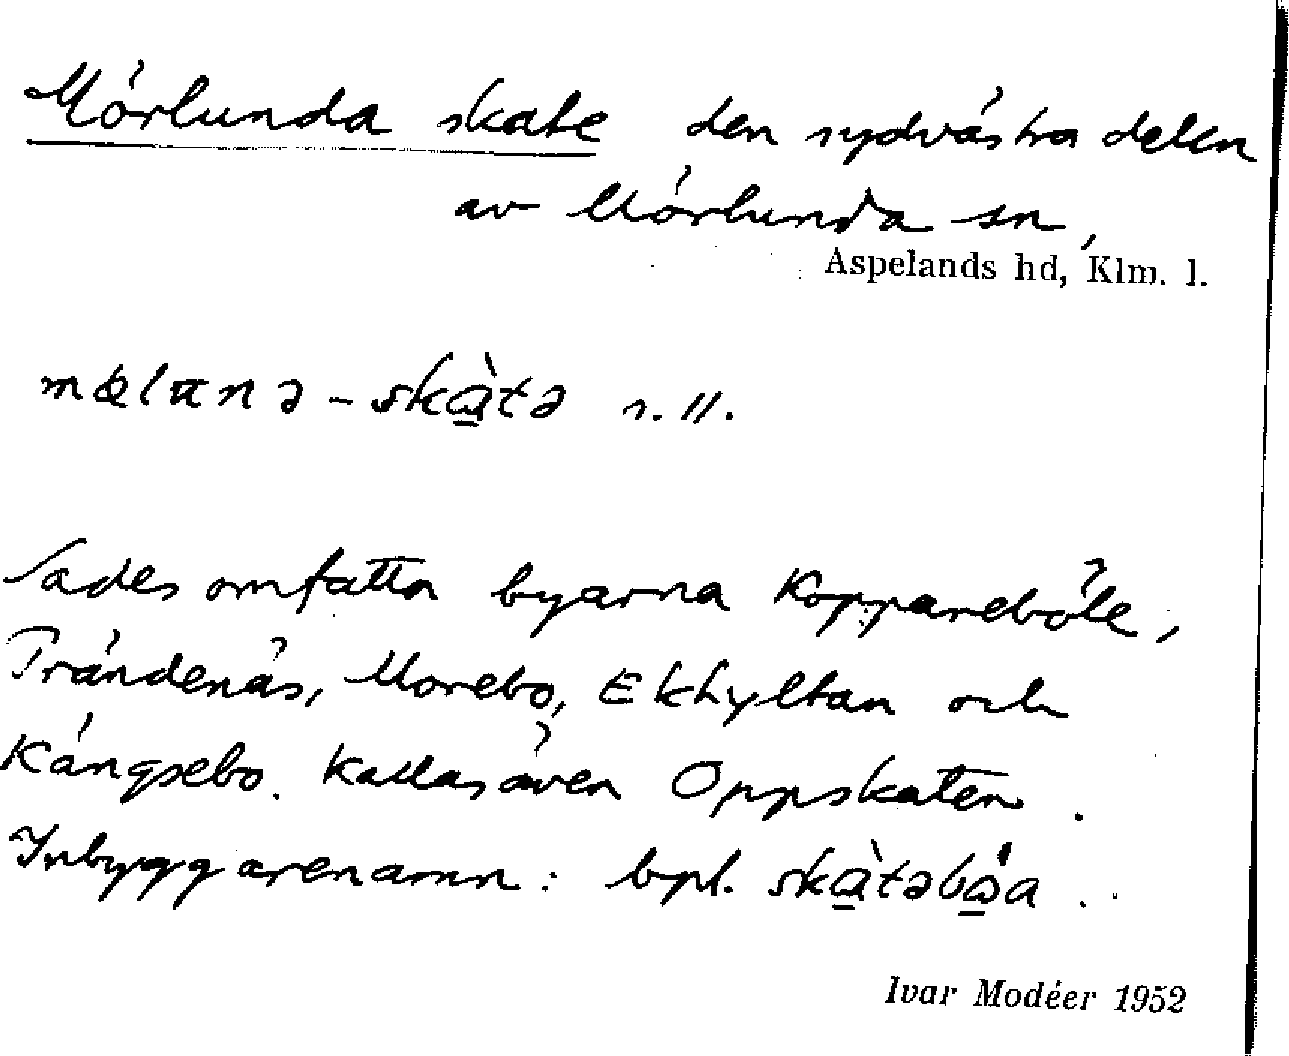 Mörlunda skate den sydvästra delen
av Mörlunda sn,
Aspelands hd, Klm. l.
skàtə s. ll.
Sades omfatta byarna Koppareböle,
Trändenäs, Morebo, Ekhyltan och
Kängsebo. Kallas även Oppskaten.
Inbyggarenamn: bpl.
Ivar Modéer 1952